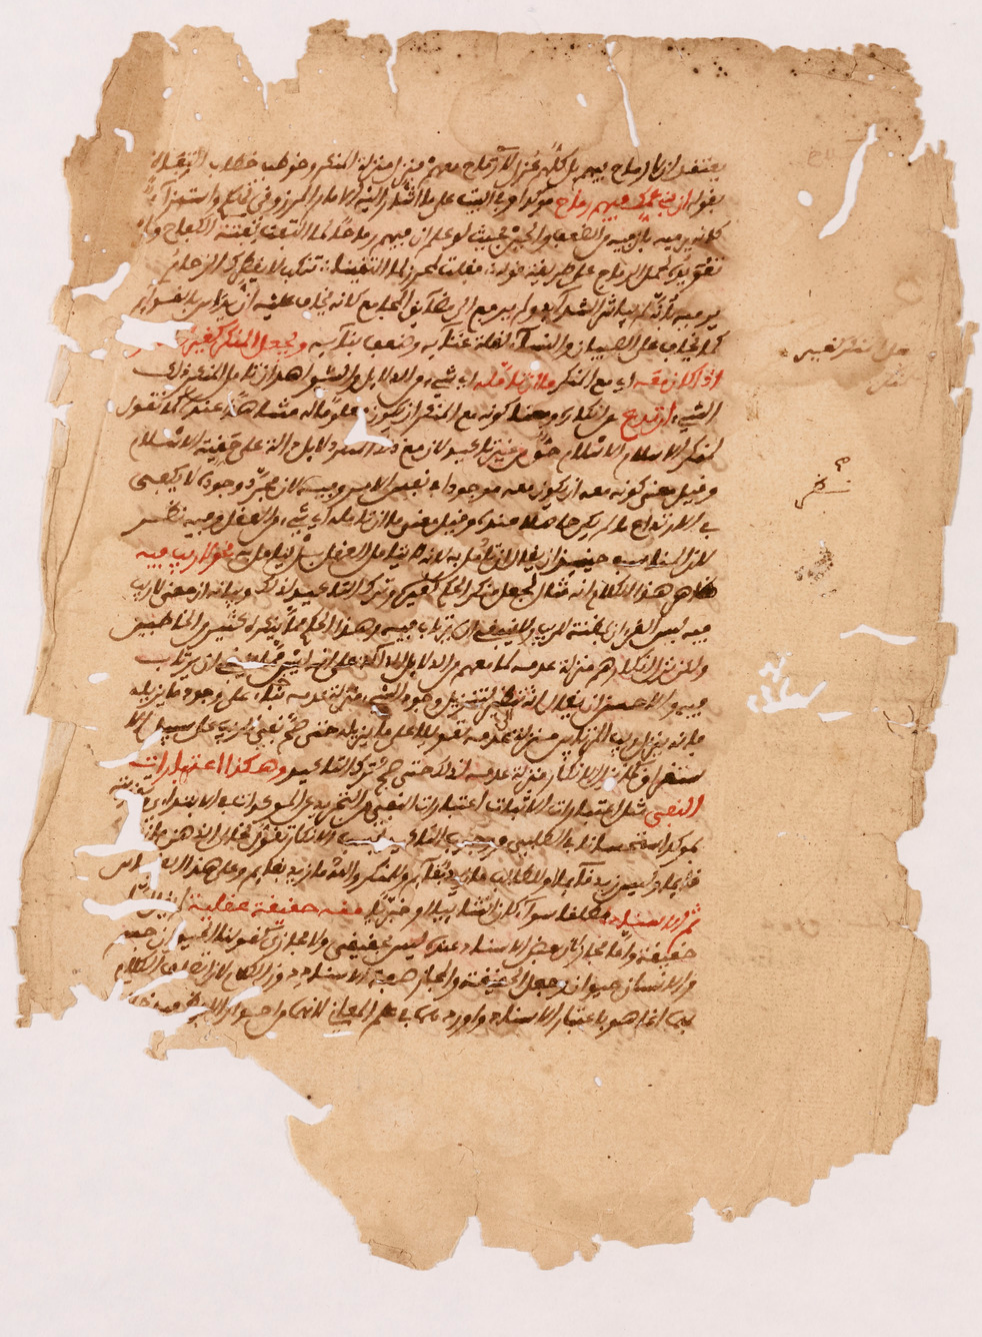 يعتقد ان لا رماح فيهم بل كلهم عزل لا سلاح معهم فنزل منزلة المنكر وخوطب خطاب
بقوله ان بني عمك فيهم رماح موكدا وفي البيت على ما اشار اليه الامام المرزوقي تهكم واستهزا
كانه يرميه بان فيه من الضعف والجبن بحيث لو علم ان فيهم رماحا لما التفت لفتة الكفاح ولم
تقو يده لحمل الرماح على طريقة قوله فقلت لمحرز لما التقينا تنكب لا يقطرك الزحام
يرميه بانه لم يباشر الشدايد ولم يدفع الى مضايق المجامع كانه يخاف عليه ان يداس بالقوايم
كما يخاف على الصبيان والنسآ لقلة غنايه وضعف بنايه ويجعل المنكر كغير
اذا كان معه اي مع المنكر ما ان تامله اي شيء من الدلايل والشواهد ان تامل المنكر ذلك
الشيء ارتدع عن انكاره ومعنى كونه مع المنكر ان يكون معلوما له مشاهدا عنده كما تقول
لمنكر الاسلام الاسلام حق من غير تاكيد لان مع ذلك دلايل دالة على حقية الاسلام
وقيل معنى كونه معه ان يكون معه موجودا في نفس الامر وفيه لان مجرد وجوده لا يكفي
في الارتداع ما لم يكن حاصلا عنده وقيل معنى ما ان تامله اي شيء من العقل وفيه نظر
لان المناسب حينيذ ان يقال ان تامل به لانه لا يتامل العقل بل يتامل به نحو لا ريب فيه
ظاهر هذا الكلام انه مثال لجعل منكر الحكم كغيره وترك التاكيد لذلك وبيانه ان معنى لا ريب
فيه ليس القران بمظنة للريب ولا ينبغي ان يرتاب فيه وهذا الحكم مما ينكره كثير من المخاطبين
ولكن نزل انكارهم منزلة عدمه لما معهم من الدلايل الدالة على انه ليس مما ينبغي ان يرتاب
فيه والاحسن ان يقال انه نظير لتنزيل وجود الشيء منزلة عدمه بناء على وجود ما يزيله
فانه نزل ريب المرتابين منزلة عدمه تعويلا على ما يزيله حتى صح نفي الريب على سبيل الا
ستغراق كما نزل الانكار منزلة عدمه لذلك حتى صح ترك التاكيد وهكذا اعتبارات
النفي مثل اعتبارات الاثبات اعتبارات النفي من التجريد عن الموكدات في الابتداي
بموكد استحسانا في الطلبي ووجوب التاكيد بحسب الانكار تقول لخالي الذهن ما زيد
قايما وليس زيد قايما وللطالب ما زيد بقايم وللمنكر والله ما زيد بقايم وعلى هذا القياس
ثم الاسناد مطلقا سوآ كان انشاييا او خبريا منه حقيقة عقلية
حقيقة واما مجاز لان بعض الاسناد عنده ليس بحقيقي ولا مجازي كقولنا الحيوان جسم
والانسان حيوان وجعل الحقيقة والمجاز صفة الاسناد دون الكلام لان اتصاف الكلام
بهما انما هو باعتبار الاسناد واوردهما في علم المعاني لانهما من احوال اللفظ